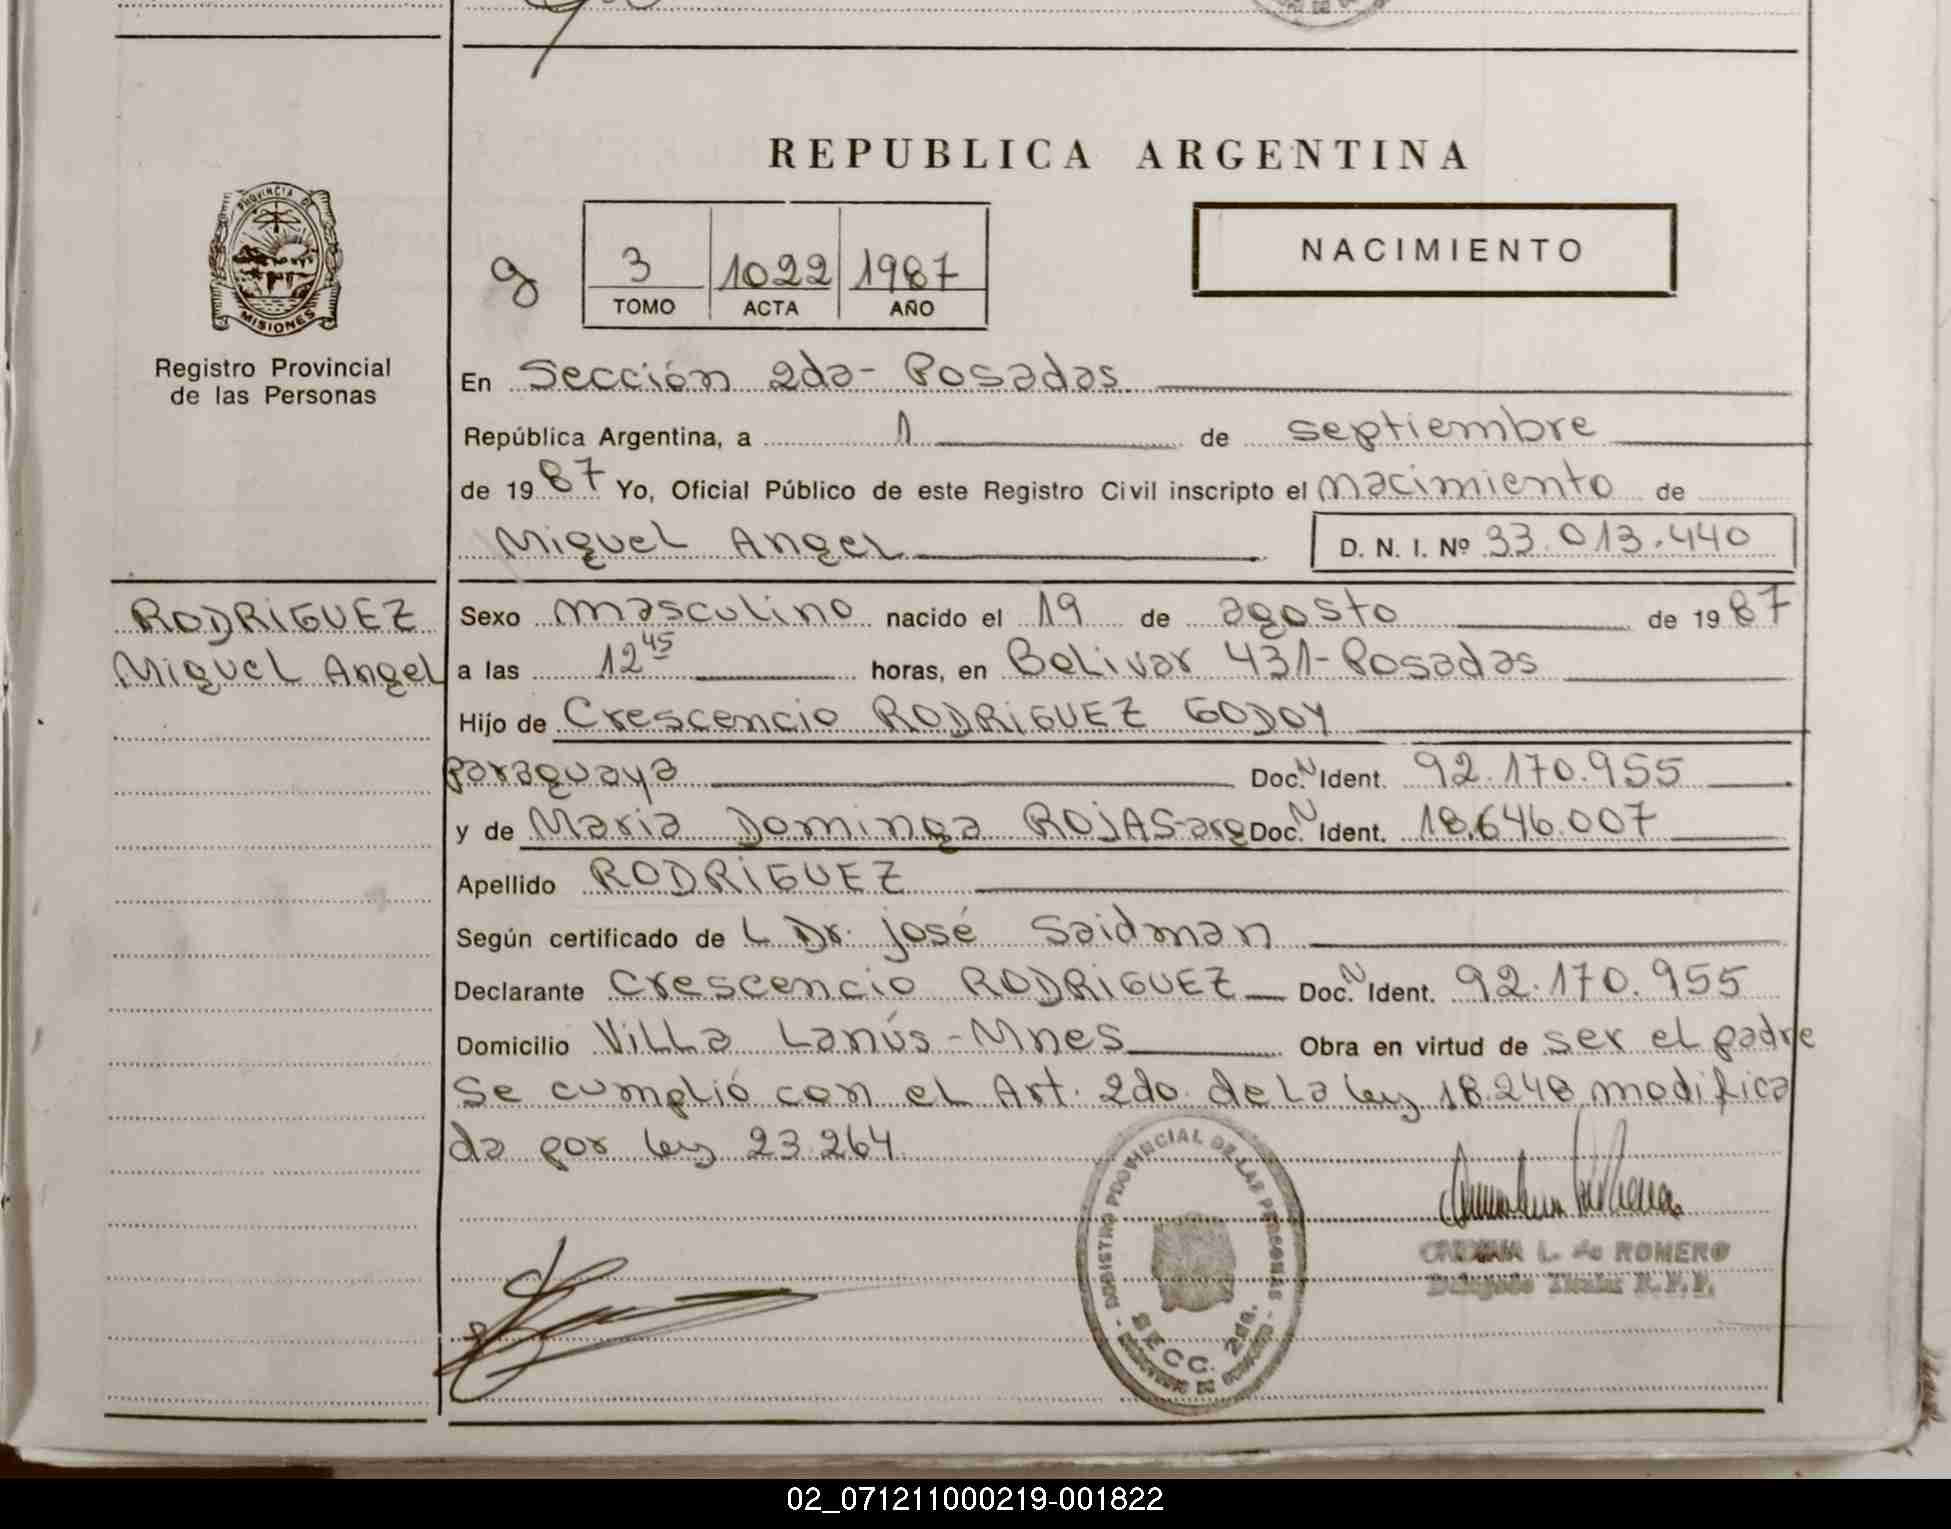 REPUBLICA ARGENTINA
PROVINCIA DE
MISIONES
Registro Provincial
de las Personas
g
3 1022 1987
TOMO ACTA AÑO
NACIMIENTO
En Sección 2da- Posadas
República Argentina, a 1 de septiembre
de 1987 Yo, Oficial Público de este Registro Civil inscripto el nacimiento de
Miguel Angel D. N. I. Nº 33.013.440
RODRIGUEZ
Miguel Angel
Sexo masculino nacido el 19 de agosto de 1987
a las 12 45 horas, en Bolivar 431-Posadas
Hijo de Crescencio RODRIGUEZ GODOY
paraguaya Doc. N Ident. 92.170.955
y de Maria Dominga ROJAS-arg Doc. N Ident. 18.646.007
Apellido RODRIGUEZ
Según certificado de L Dr. josé Saidman
Declarante Crescencio RODRIGUEZ Doc. N Ident. 92.170.955
Domicilio Villa Lanús-Mnes Obra en virtud de ser el padre
Se cumplió con el Art. 2do. de la ley 18.248 modifica
da por ley 23.264
REGISTRO PROVINCIAL DE LAS PERSONAS
SECC. 2da.
L. de ROMERO
02_071211000219-001822